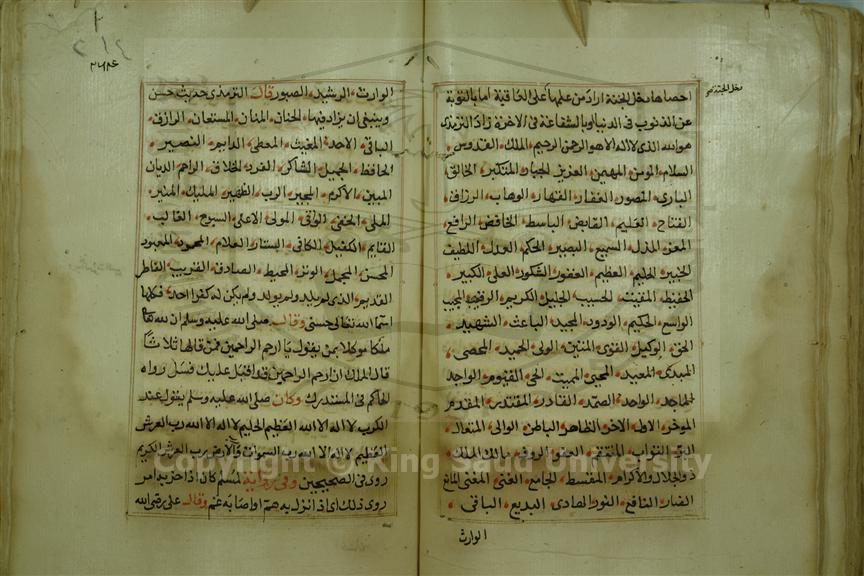 احصاها دخل الجنة اراد من علمها على العافية اما بالتوبة
عن الذنوب فى الدنيا او بالشفاعة فى الاخرة زاد الترمذى
هو الله الذى لا اله الا هو الرحمن الرحيم الملك القدوس
السلام المومن المهيمن العزيز الجبار المتكبر الخالق
البارى المصور الغفار القهار الوهاب الرزاق
الفتاح العليم القابض الباسط الخافض الرافع
المعز المذل السميع البصير الحكم العدل اللطيف
الخبير الحليم العظيم الغفور الشكور العلى الكبير
الحفيظ المقيت الحسيب الجليل الكريم الرقيب المجيب
الواسع الحكيم الودود المجيد الباعث الشهيد
الحق الوكيل القوى المتين الولى الحميد المحصى
المبدى المعيد المحيى المميت الحى القيوم الواجد
الماجد الواحد الصمد القادر المقتدر المقدم
الموخر الاول الاخر الظاهر الباطن الوالى المتعال
البر التواب المنتقم العفو الروف مالك الملك
ذو الجلال والاكرام المقسط الجامع الغنى المغنى المانع
الضار النافع النور الهادى البديع الباقى
الوارث
دخل الجنة
الوارث الرشيد الصبور قال الترمذى حديث حسن
وينبغى ان يزاد فيها الحنان المنان المستعان الرازق
الباقى الاحد المغيث المعطى الدايم النصير
الحافظ الجميل الشاكر الفرد الخلاق الراحم الديان
المبين الاكرم المجير الرب الظهير المليك المنير
الملى الخفى الواقى المولى الاعلى السبوح الغالب
القايم الكفيل الكافى الستار العلام المحمود المعبود
المحسن المجمل الوتر المحيط الصادق القريب الفاطر
القديم الذى لم يلد ولم يولد ولم يكن له كفوا احد فكلها
اسما الله تعالى حسنى وقال صلى الله عليه وسلم ان لله تعالى
ملكا موكلا بمن يقول يا ارحم الراحمين فمن قالها ثلاثا
قال الملك ان ارحم الراحمين قد اقبل عليك فسل رواه
الحاكم فى المستدرك وكان صلى الله عليه وسلم يقول عند
الكرب لا اله الا الله العظيم الحليم لا اله الا الله رب العرش
العظيم لا اله الا الله رب السموات والارض رب العرش الكريم
روى فى الصحيحين وفى رواية لمسلم كان اذا حزبه امر
روى ذلك اى اذا نزل به هم او اصابه غم وقال على رضى الله
Copyright © King Saud University